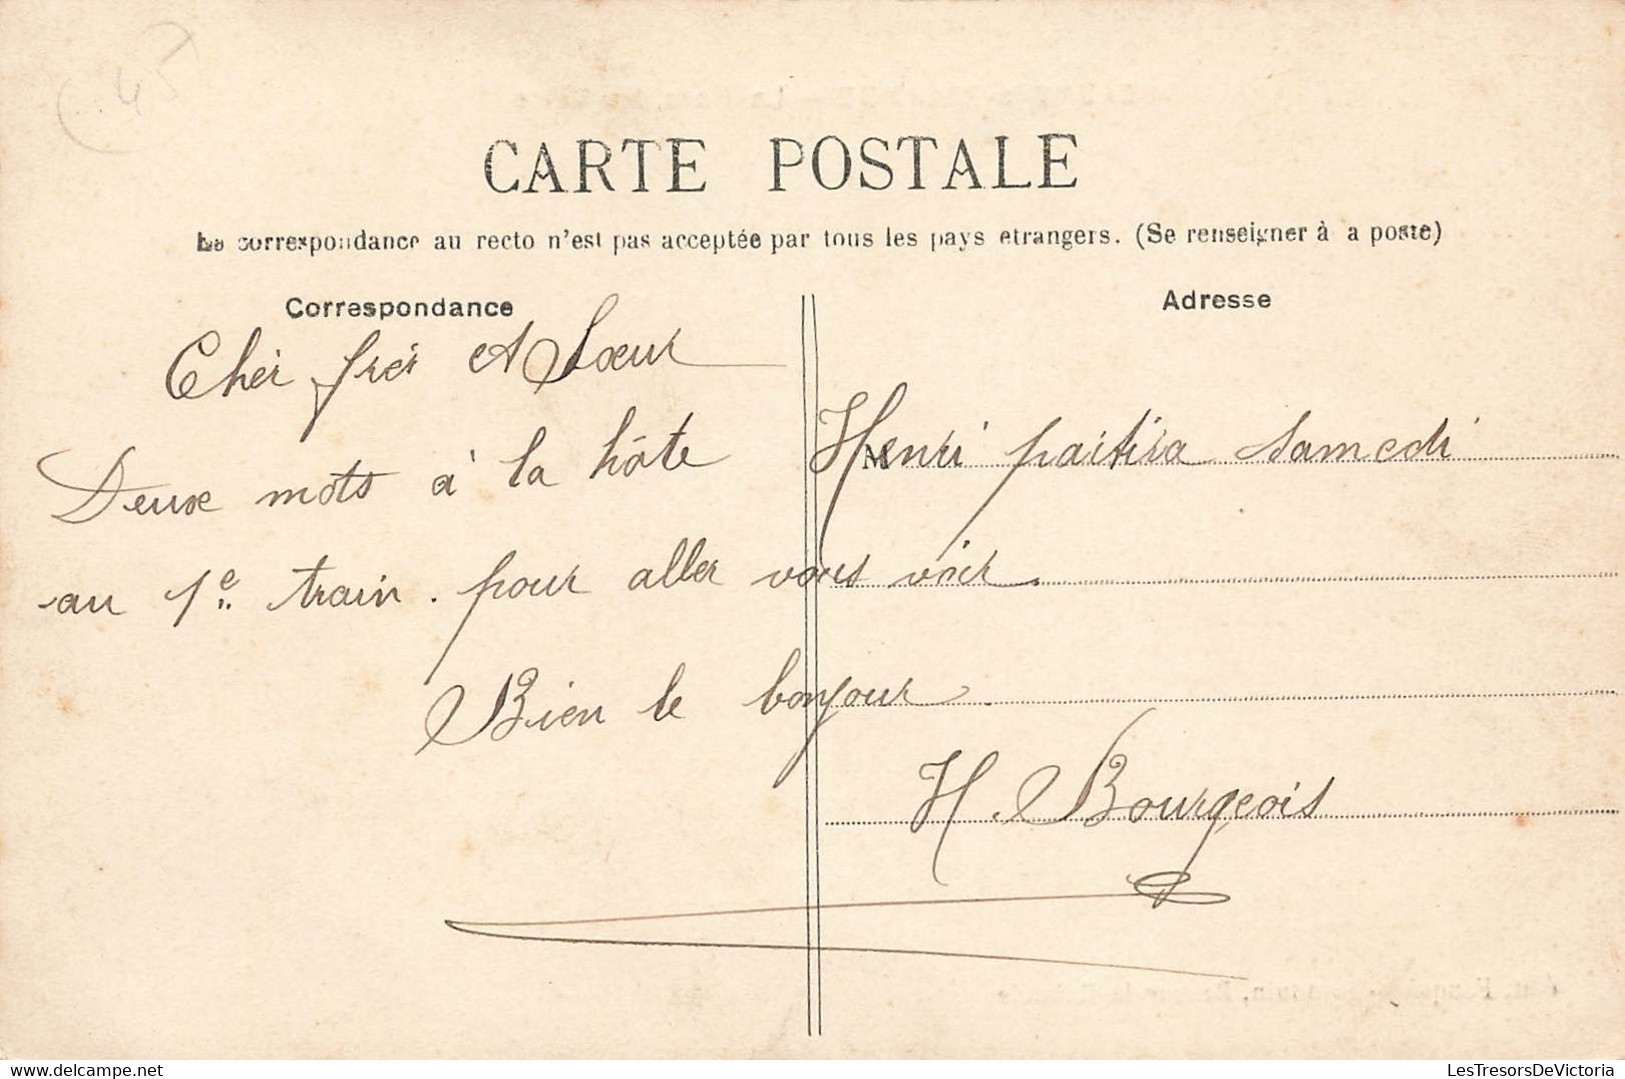 45
CARTE POSTALE
La correspondance au recto n'est pas acceptée par tous les pays etrangers. (Se renseigner à a poste)
Correspondance
Adresse
Cher frèr et Soeur
Deux mots à la hâte Henri partira Samedi
M
au 1e train. pour aller vous voir.
Bien le bonjour.
H. Bourgeois
LesTresorsDeVictoria